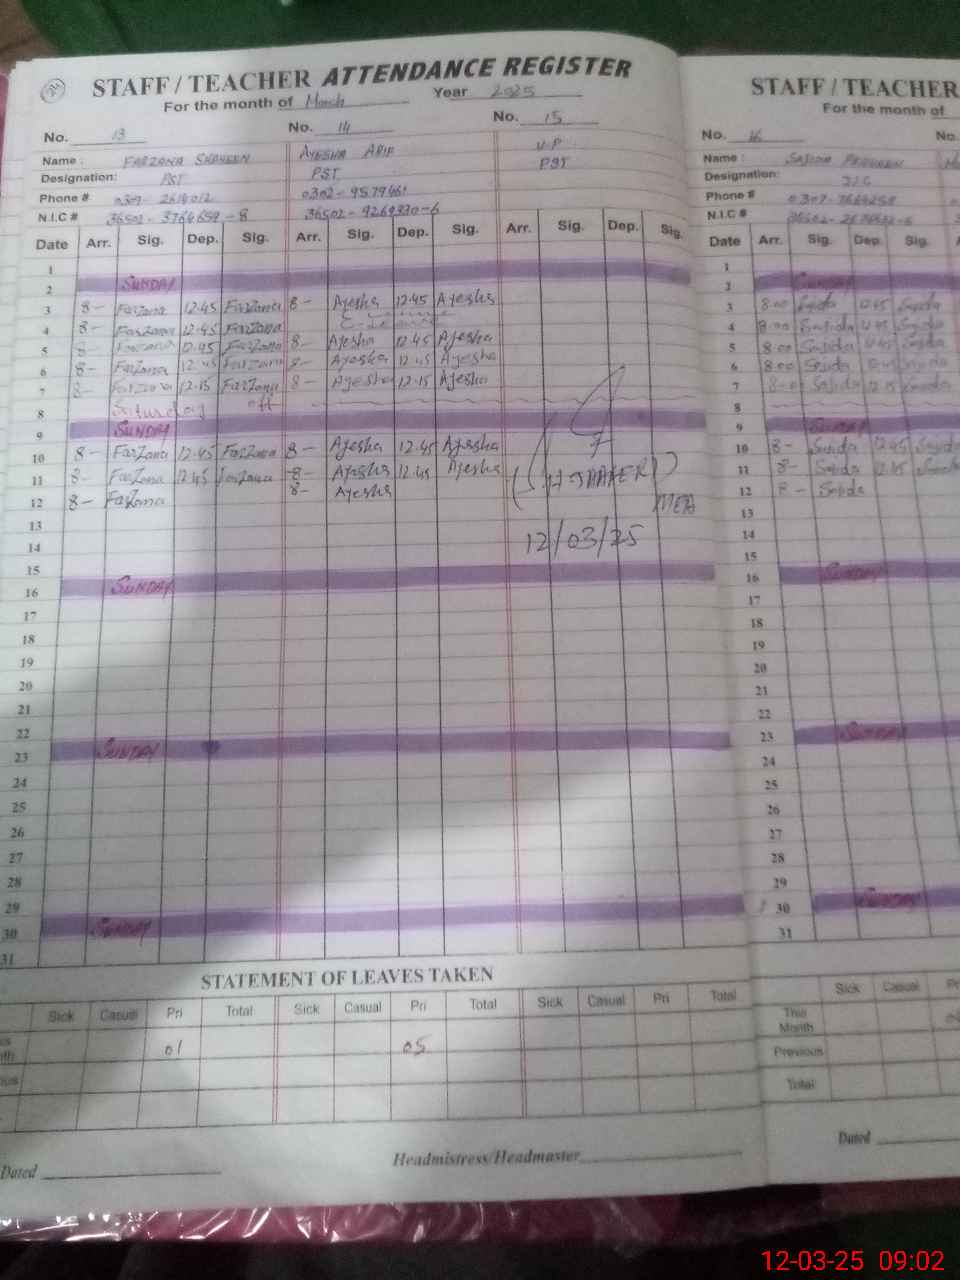 STAFF / TEACHER ATTENDANCE REGISTER
For the month of March Year 2025
No. 13 No. 14 No. 15
Name : FARZANA SHAHEEN AYESHA ARIF V.P
Designation: PST PST PST
Phone # 0302-9579661
N.I.C # 36502-3764659-8 36502-9269330-6
Date Arr. Sig. Dep. Sig. Arr. Sig. Dep. Sig. Arr. Sig. Dep. Sig.
1
2 SUNDAY
3 8- Farzana 12.45 Farzana 8- Ayesha 12.45 Ayesha
4 8- Farzana 12.45 Farzana
5 8- Farzana 12.45 Farzana 8- Ayesha 12.45 Ayesha
6 8- Farzana 12.45 Farzana 8- Ayesha 12.45 Ayesha
7 8- Farzana 12.15 Farzana 8- Ayesha 12.15 Ayesha
8 Saturday off
9 SUNDAY
10 8- Farzana 12.45 Farzana 8- Ayesha 12.45 Ayesha
11 8- Farzana 12.45 Farzana 8- Ayesha 12.45 Ayesha
12 8- Farzana 8- Ayesha
MEA
13
12/03/25
14
15
16 SUNDAY
17
18
19
20
21
22
23 SUNDAY
24
25
26
27
28
29
30 SUNDAY
31
STATEMENT OF LEAVES TAKEN
Sick Casual Pri Total Sick Casual Pri Total Sick Casual Pri Total
01 05
Dated Headmistress/Headmaster
STAFF / TEACHER
For the month of
No. 16 No.
Name : SAJIDA PERVEEN
Designation:
Phone #
N.I.C #
Date Arr. Sig. Dep. Sig.
1
2 SUNDAY
3 8.00 Sajida 12.45 Sajida
4 8.00 Sajida 12.45 Sajida
5 8.00 Sajida 12.45 Sajida
6 8.00 Sajida
7 8.00 Sajida 12.15 Sajida
8
9 SUNDAY
10 8- Sajida 12.45 Sajida
11 8- Sajida 12.45 Sajida
12 8- Sajida
13
14
15
16 SUNDAY
17
18
19
20
21
22
23 SUNDAY
24
25
26
27
28
29
30 SUNDAY
31
Sick Casual
This Month
Previous
Total
Dated
12-03-25 09:02